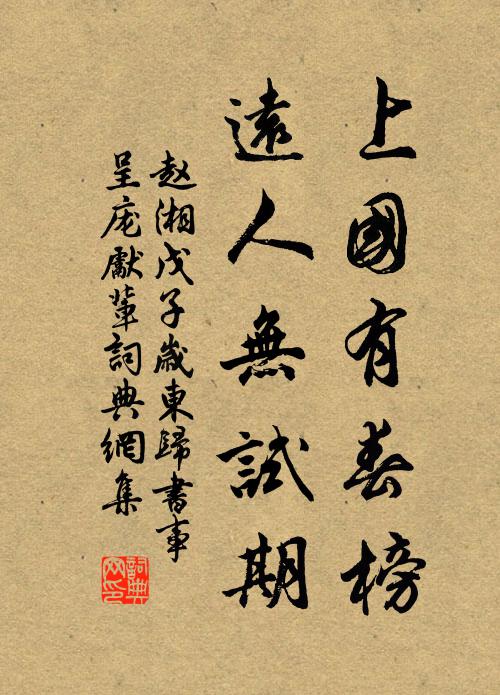 上國有春榜
遠人無試期
赵湘戊子歲東歸書事
呈庞獻輩詞典網集
詞典网印